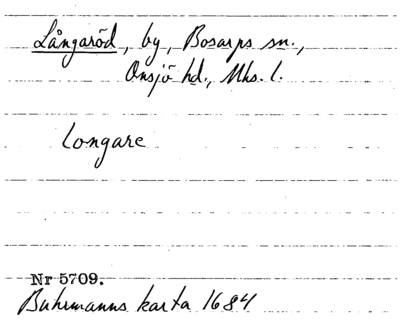 Långaröd, by, Bosarps sn.,
Onsjö hd., Mhs. l.
Longare
Nr 5709.
Buhrmanns karta 1684